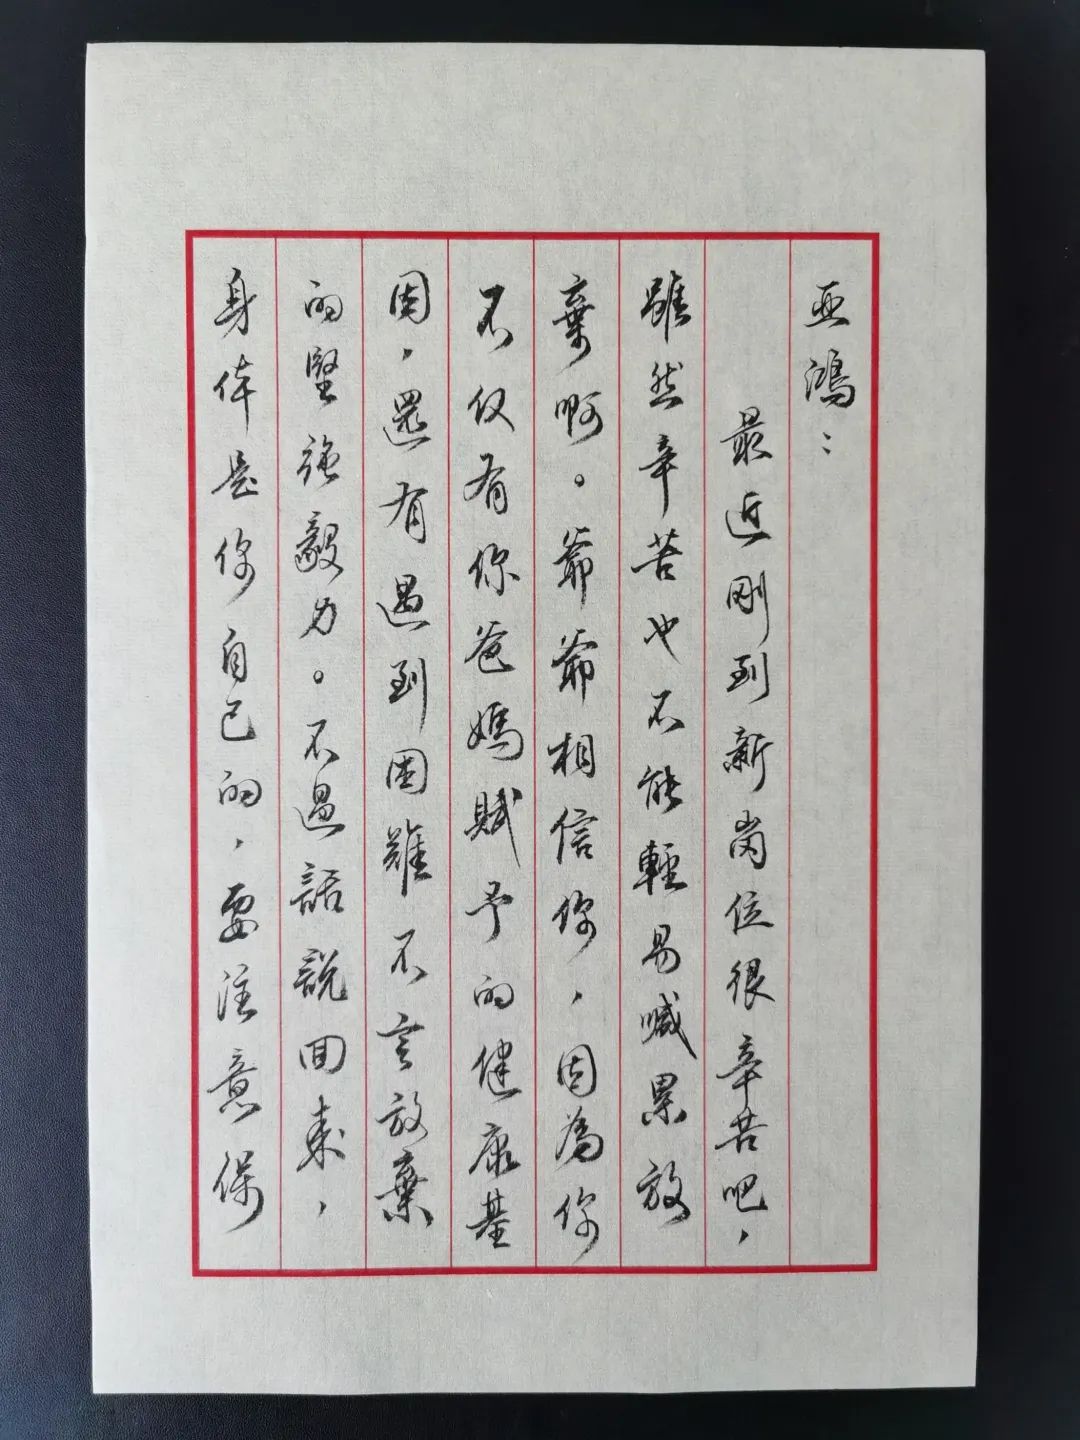 亚鸿：
最近刚到新岗位很辛苦吧，
雖然辛苦也不能輕易喊累放
棄啊。爺爺相信你，因為你
不仅有你爸媽賦予的健康基
因，還有遇到困難不言放棄
的堅強毅力。不過話説回来，
身体是你自己的，要注意保